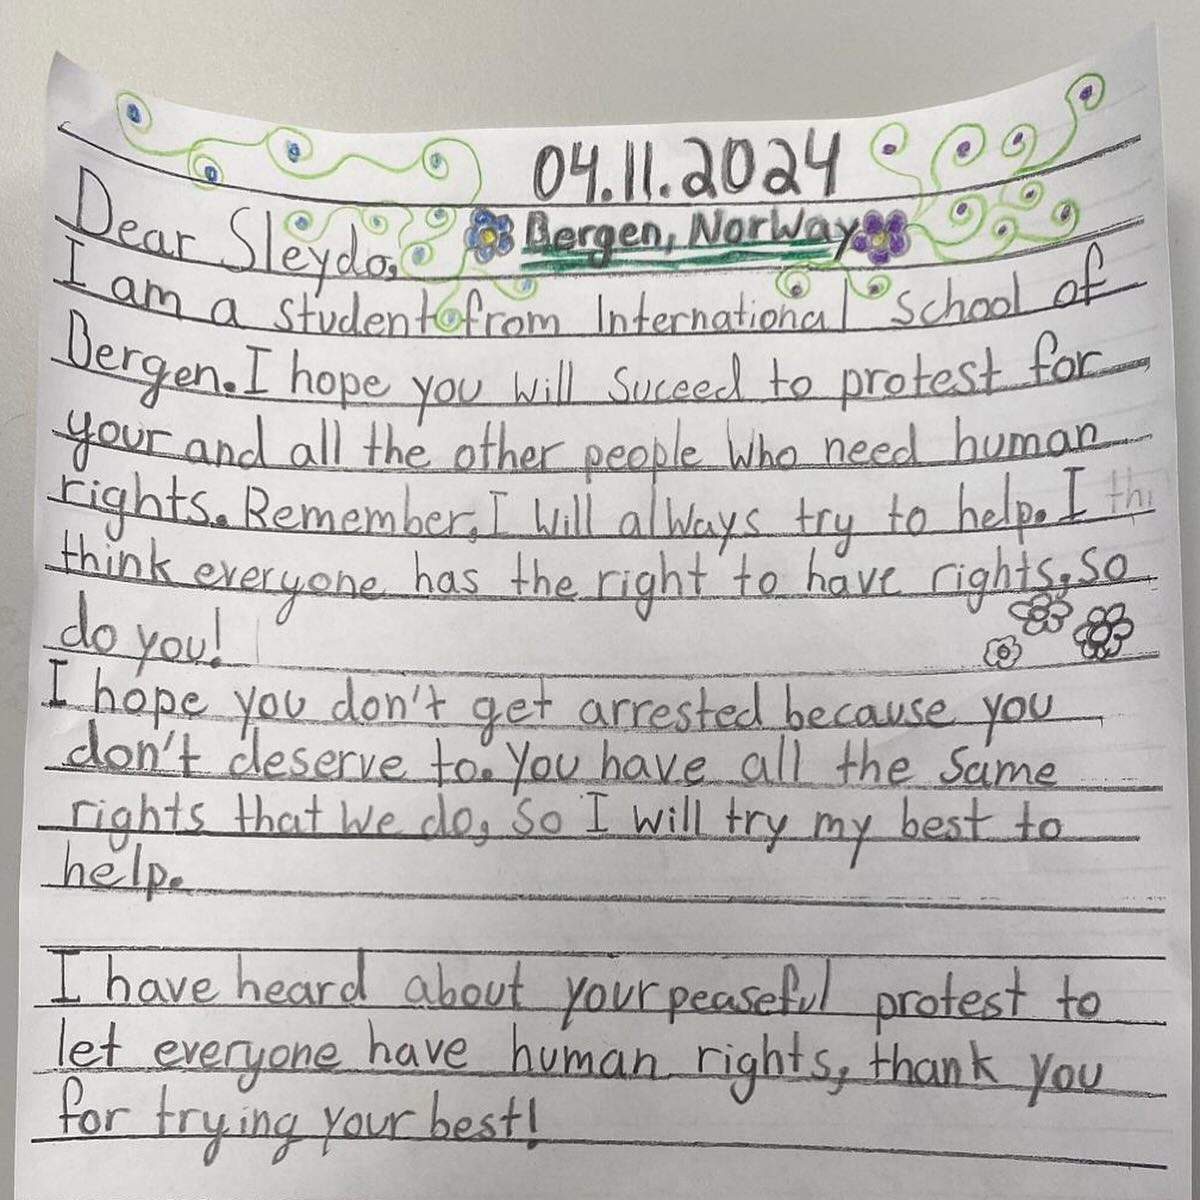 04.11.2024
Bergen, Norway
Dear Sleydo,
I am a student from International School of
Bergen. I hope you will suceed to protest for
your and all the other people who need human
rights. Remember, I will always try to help. I thi
think everyone has the right to have rights, so
do you!
I hope you don't get arrested because you
don't deserve to. You have all the same
rights that we do, so I will try my best to
help.
I have heard about your peaseful protest to
let everyone have human rights, thank you
for trying your best!